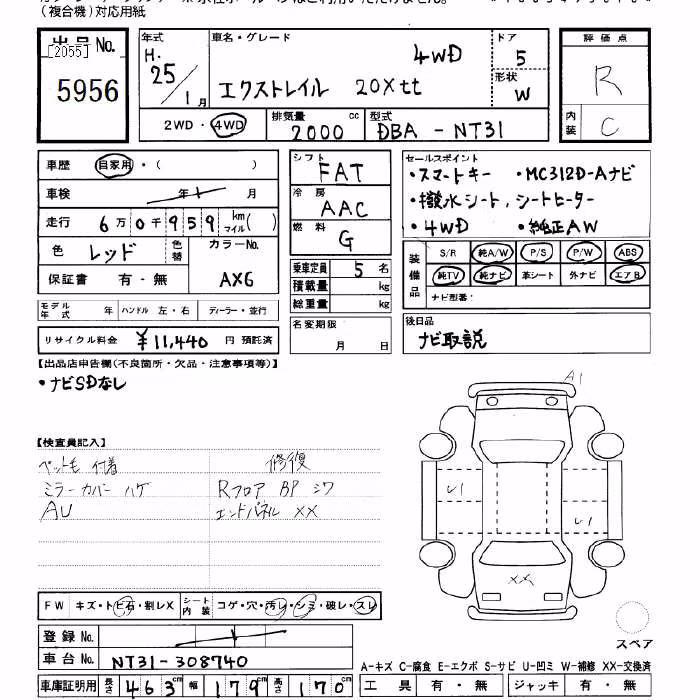 (複合機)対応用紙
出品 No. [2055] 5956
年式 H. 25/1月
車名・グレード 4WD
エクストレイル 20Xtt
ドア 5
形状 W
2WD・4WD
排気量 2000 cc
型式 DBA - NT31
評価点 R
内装 C
車歴 自家用・( )
車検 年 月
走行 6万0千959 km マイル( )
色 レッド 色替 カラーNo. AX6
保証書 有・無
モデル年式 年 ハンドル 左・右 ディーラー・並行
リサイクル料金 ¥11,440 円 預託済
シフト FAT
冷房 AAC
燃料 G
乗車定員 5 名
積載量 kg
総重量 kg
名変期限 月 日
セールスポイント
・スマートキー ・MC312D-Aナビ
・撥水シート,シートヒーター
・4WD ・純正AW
装備品 S/R 純A/W P/S P/W ABS
純TV 純ナビ 革シート 外ナビ エアB
ナビ型番:
後日品
ナビ取説
【出品店申告欄(不良箇所・欠品・注意事項等)】
・ナビSDなし
【検査員記入】
ペット毛 付着 修復
ミラーカバー ハゲ Rフロア BP シワ
AU エンドパネル XX
A1
XX
FW キズ・トビ石・割レX シート内装 コゲ・穴・汚レ・シミ・破レ・スレ
登録 No.
車台 No. NT31-308740
車庫証明用 長さ 463 cm 幅 179 cm 高さ 170 cm
スペア
A-キズ C-腐食 E-エクボ S-サビ U-凹ミ W-補修 XX-交換済
工具 有・無 ジャッキ 有・無